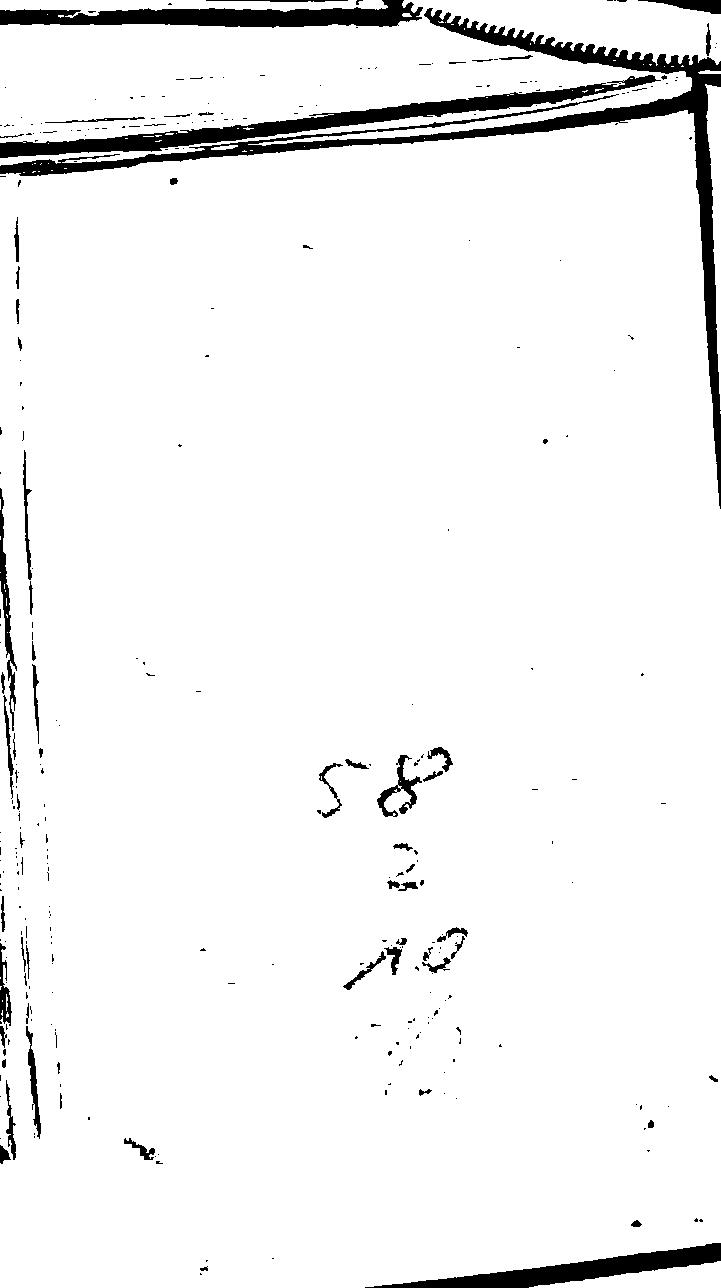 58
2
10